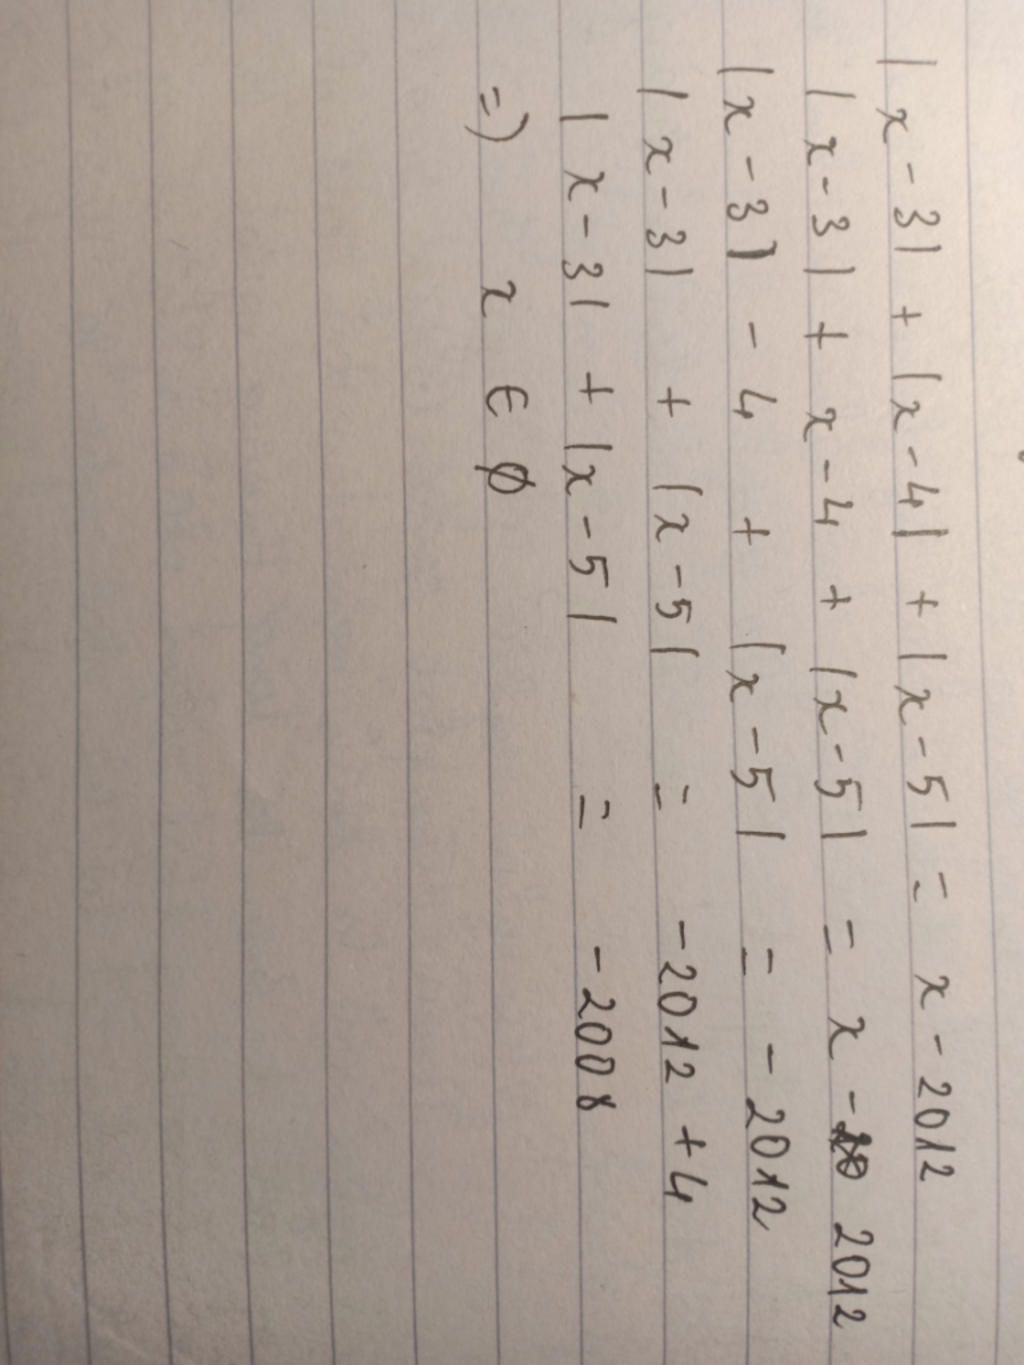 |x-3| + |x-4| + |x-5| = x-2012
|x-3| + x-4 + |x-5| = x - 2012
|x-3| - 4 + |x-5| = -2012
|x-3| + |x-5| = -2012 +4
|x-3| + |x-5| = -2008
=) x ∈ ∅